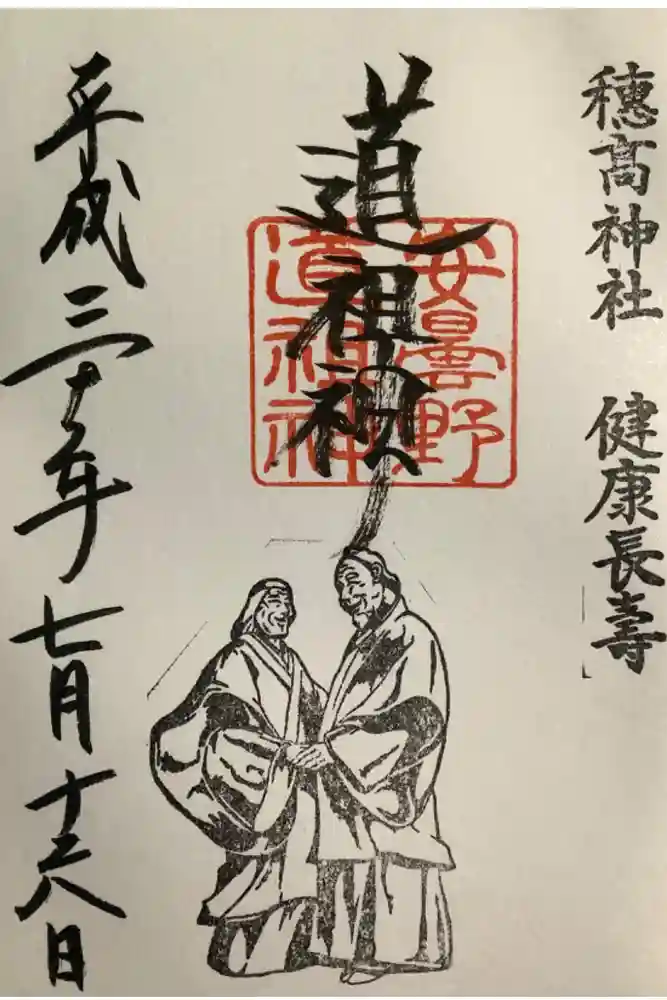 穗髙神社　健康長壽
道祖神
安曇野
道祖神
平成三十年七月十六日